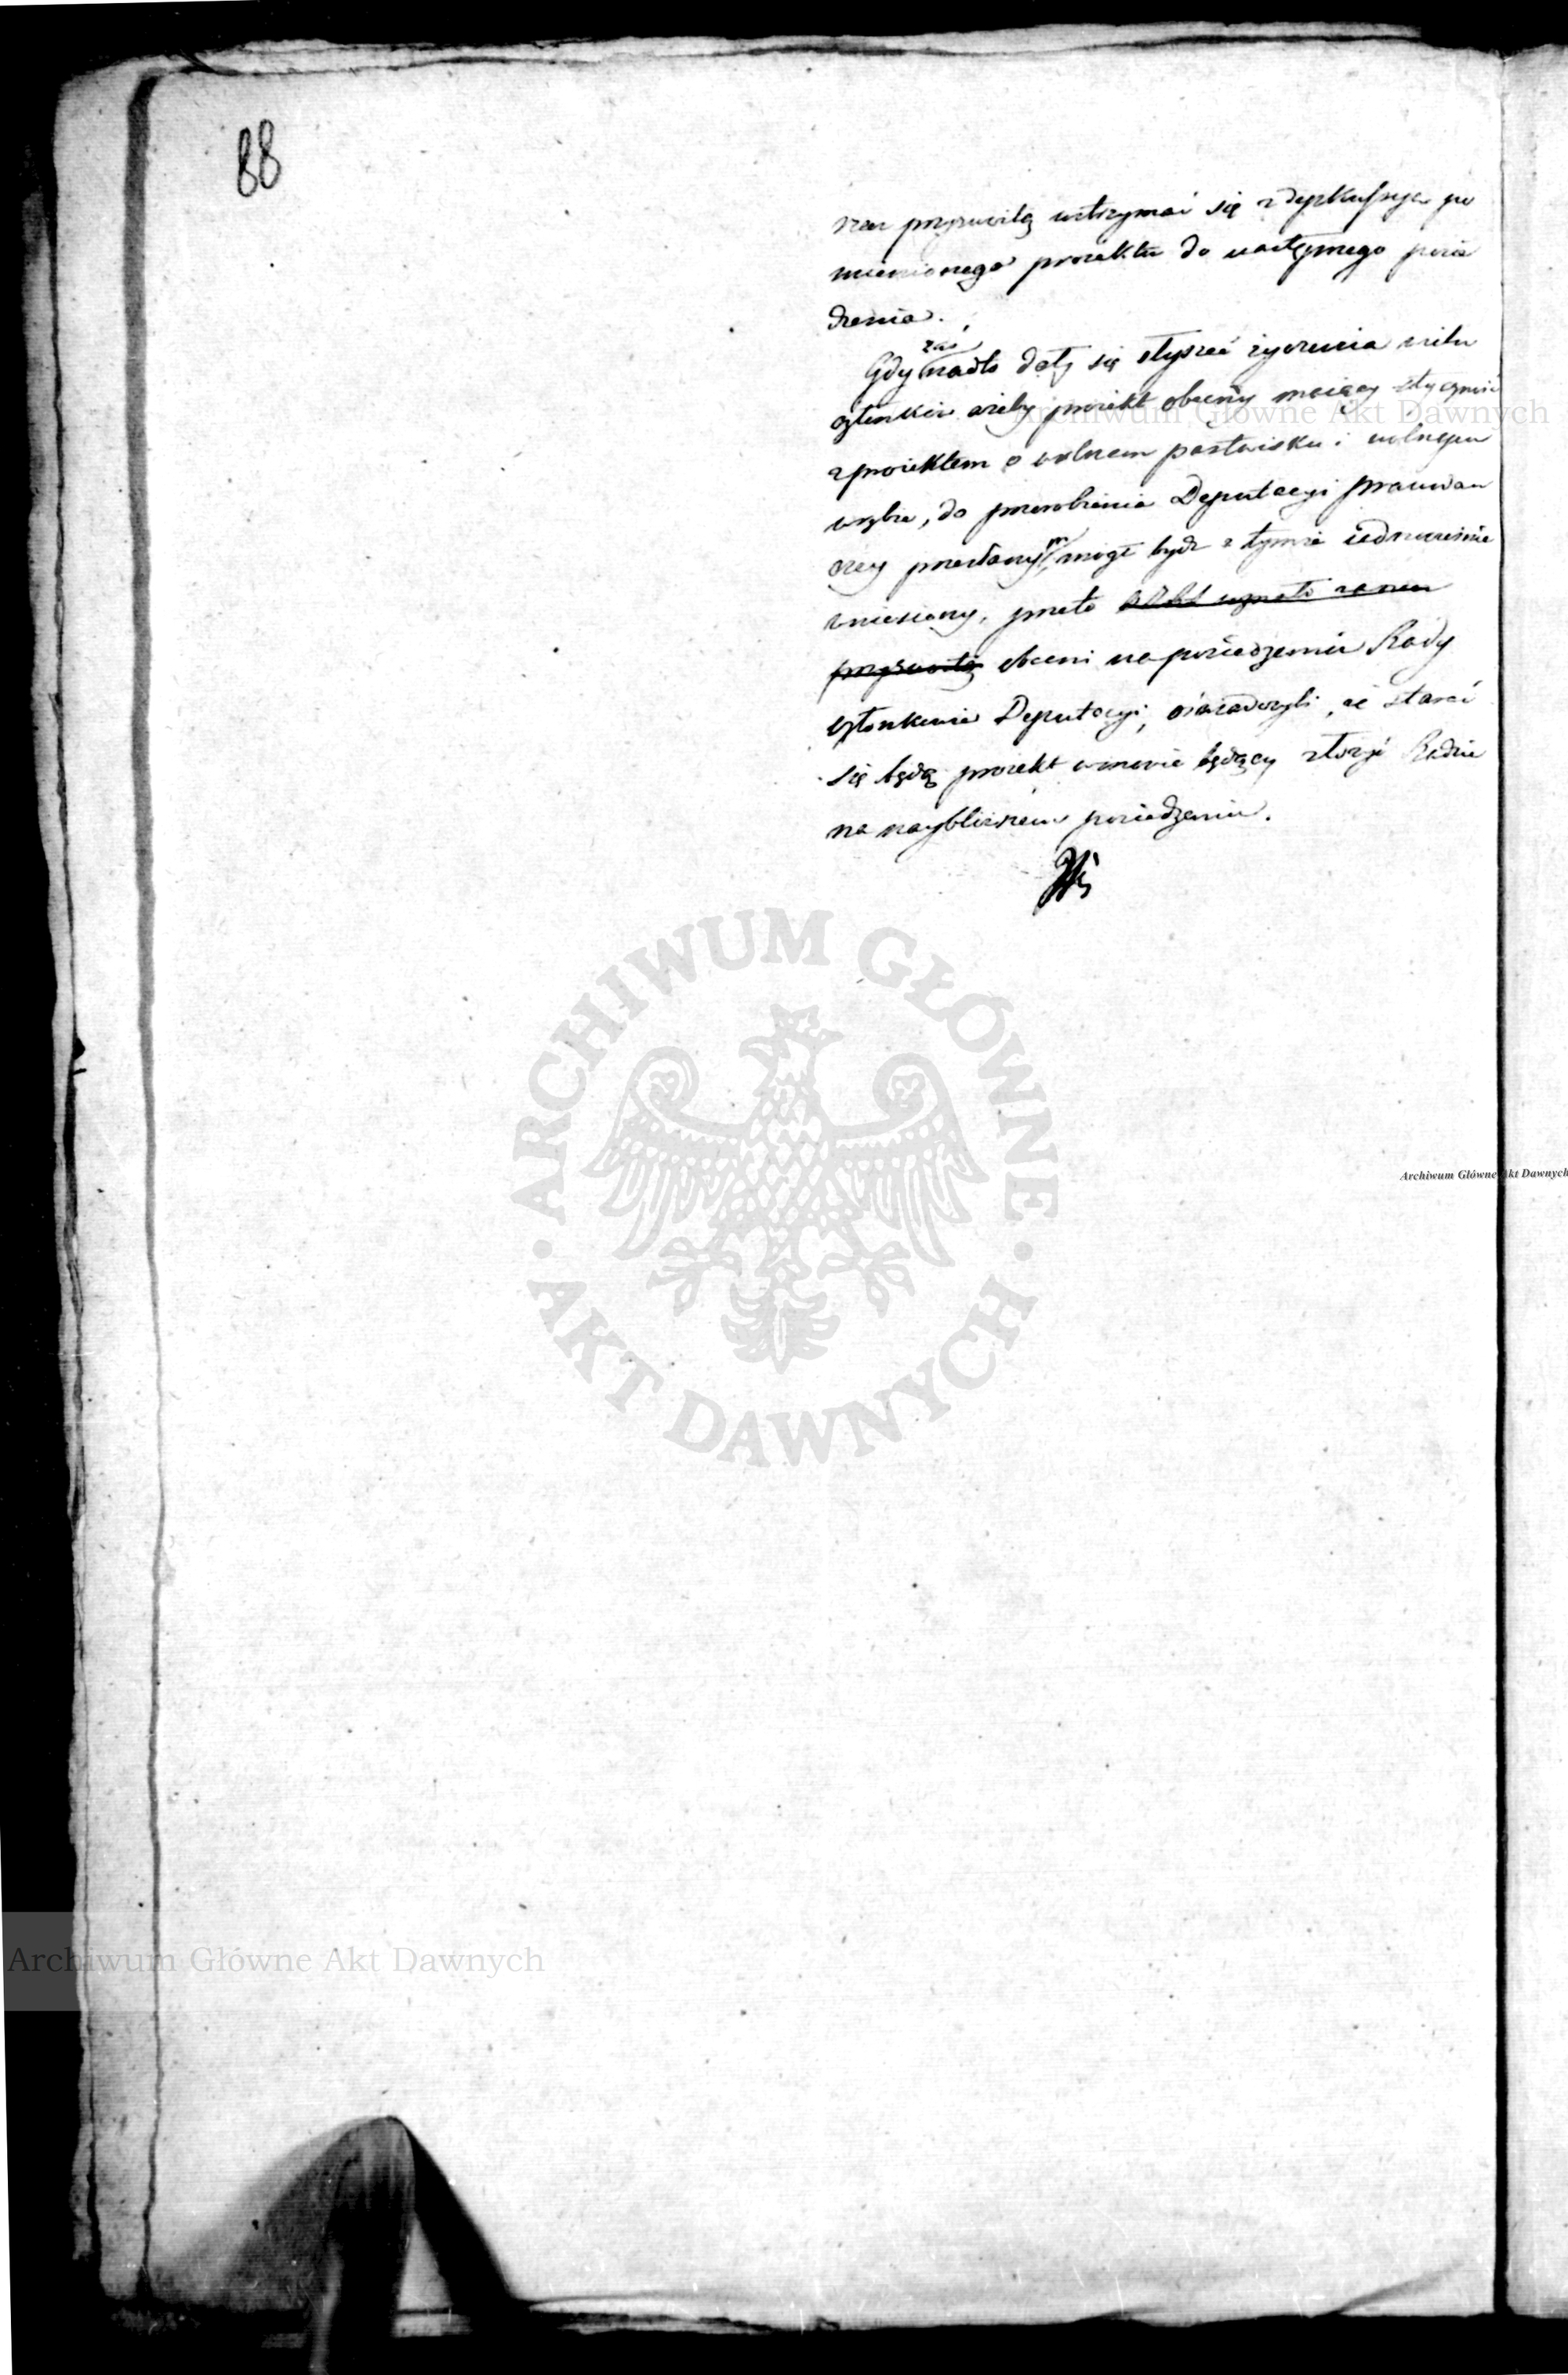 88
rzecz przyzwoitą wstrzymać się z dyskussyą po
mienionego proiektu do następnego posie
dzenia.
zaś
Gdy nadto dały się słyszeć życzenia wielu
członków ażeby proiekt obecny maiący styczność
z proiektem o wolnem pastwisku i wolnym
wrębie, do przerobienia Deputacyi prawodaw
czey przesłanym, mógł bydź z tymże iednocześnie
wniesiony, przeto
przyzwoitą obecni na posiedzeniu Rady
Członkowie Deputacyi, oświadczyli, że starać
się będą proiekt w mowie będący złożyć Radzie
na naybliższem posiedzeniu.
Archiwum Główne Akt Dawnych
ARCHIWUM GŁÓWNE AKT DAWNYCH
Archiwum Główne Akt Dawnych
Archiwum Główne Akt Dawnych